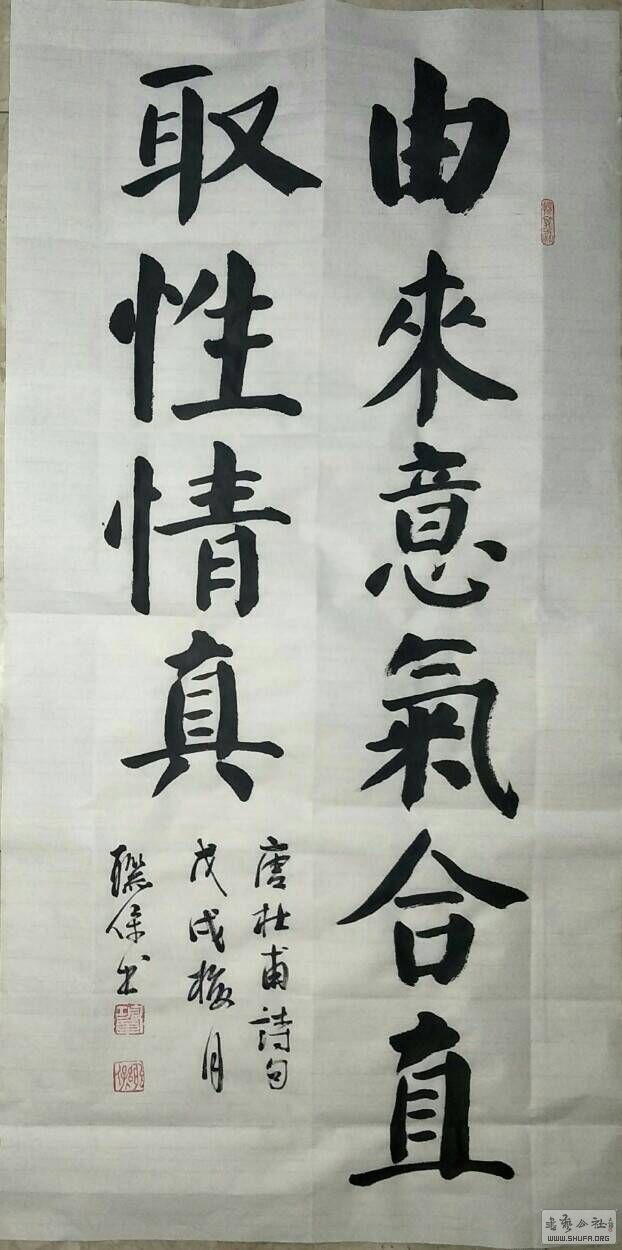 由來意氣合直
取性情真
唐杜甫詩句
戊戌梅月
聯保书
书艺公社
WWW.SHUFA.ORG